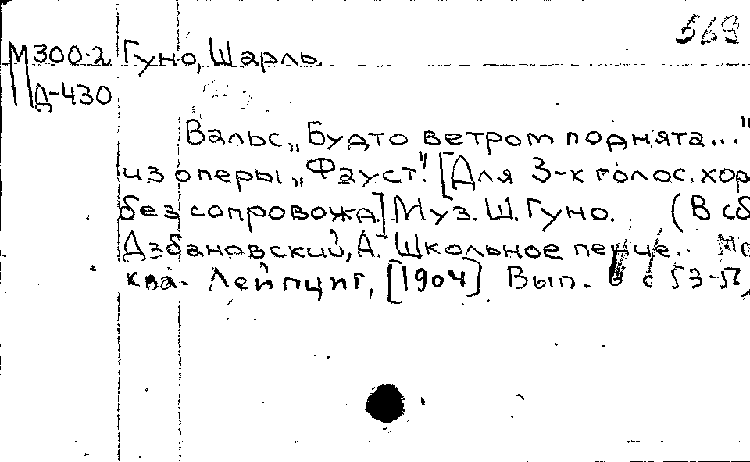 568
М300-2 Гуно, Шарль
Д-430
Вальс „Будто ветром поднята..."
из оперы „Фауст". [Для 3-х голос. хор
без сопровожд.] Муз. Ш. Гуно. (В сб
Дзбановский, А. Школьное пение. Мо
ква - Лейпциг, [1904] Вып. с 53-5